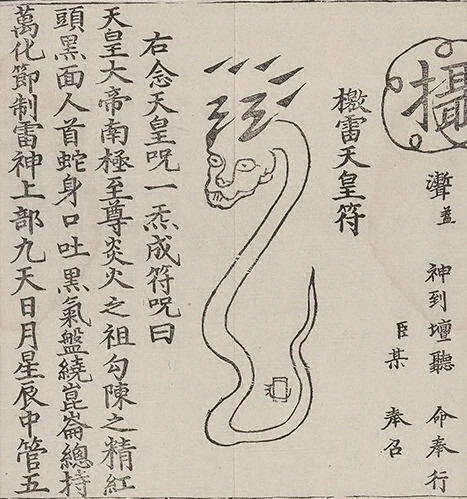 攝
神到壇聽 命奉行
臣某 奉召
檄雷天皇符
右念天皇呪一炁成符呪曰
天皇大帝南極至尊炎火之祖勾陳之精紅
頭黑面人首蛇身口吐黑氣盤繞崑崙總持
萬化節制雷神上部九天日月星辰中管五